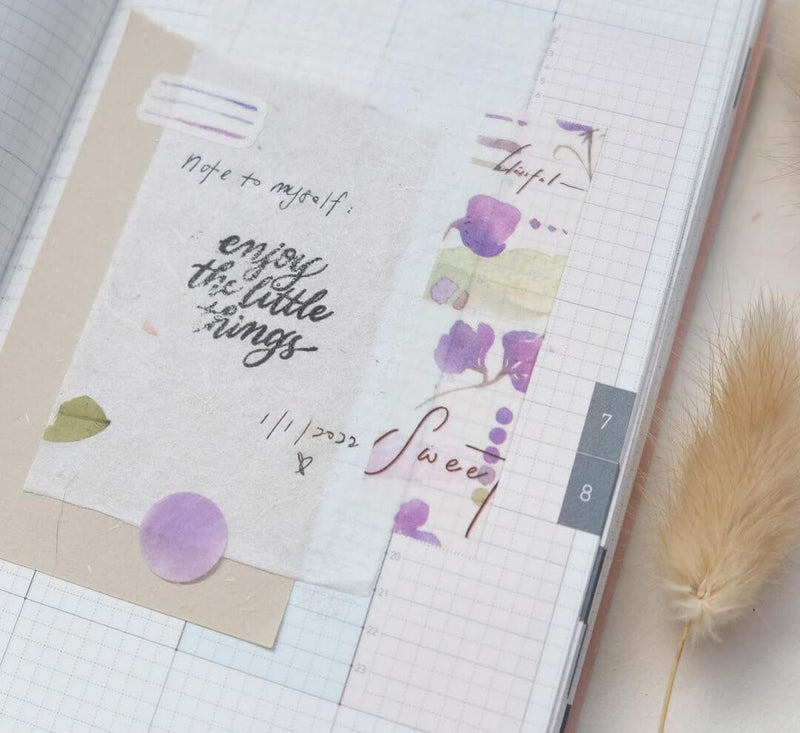 note to myself:
enjoy
the little
things
1/1/2022
blissful
Sweet
7
8
20
21
22
23